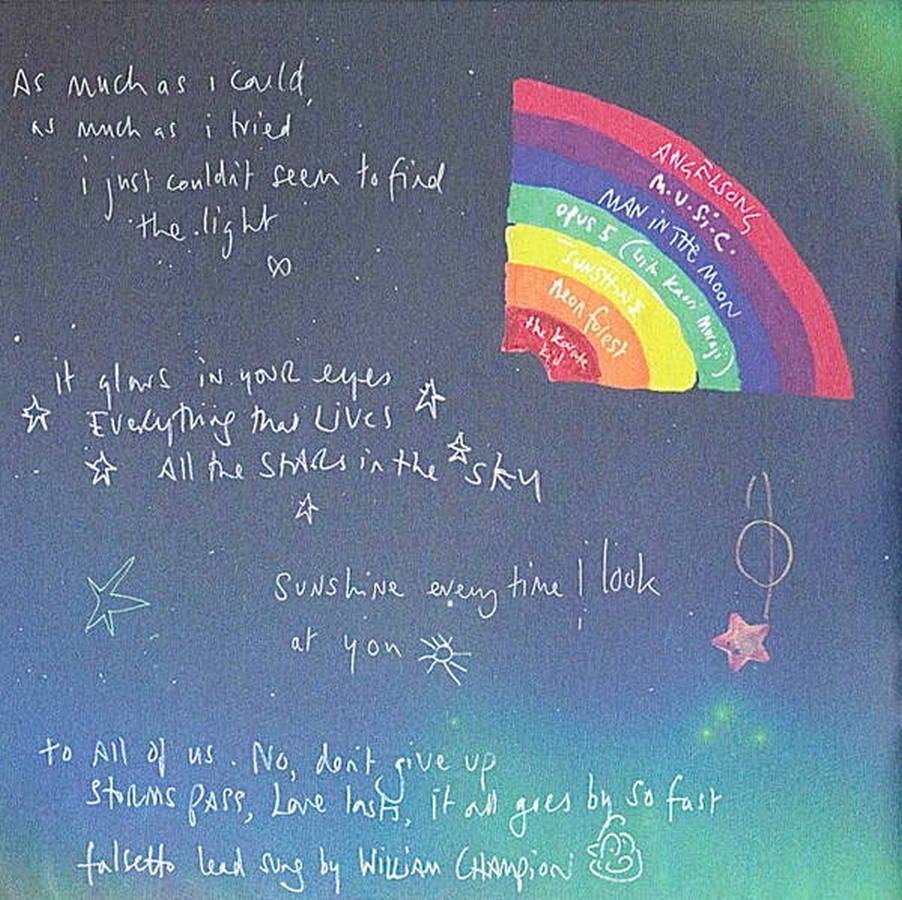 As much as i could,
as much as i tried
i just couldn't seem to find
the light
∞
ANGELSONG
M.U.S.I.C.
MAN IN THE MOON
opus 5 (with Kaori Muraji)
SUNSHINE
neon forest
the karate
kid
it glows in your eyes
Everything that Lives
All the STARS in the sky
sunshine every time I look
at you
to All of us. No, don't give up
STORMS PASS, Love lasts, it all goes by so fast
falsetto lead sung by WILLIAM CHAMPION